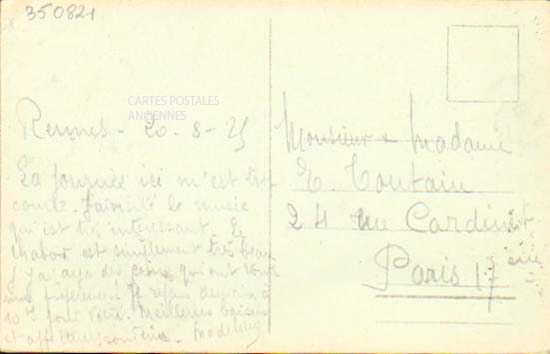 350821
CARTES POSTALES
ANCIENNES
Rennes - 20-8-25
La journée ici m'est très
courte. J'ai visité le musée
qui est très intéressant. Le
thabor est simplement très beau
Il y a des qui ont
Je repars
10h Meilleurs baisers
et affectueux Madeleine
Monsieur & Madame
E. Toutain
24 rue Cardinet
Paris 17 eme